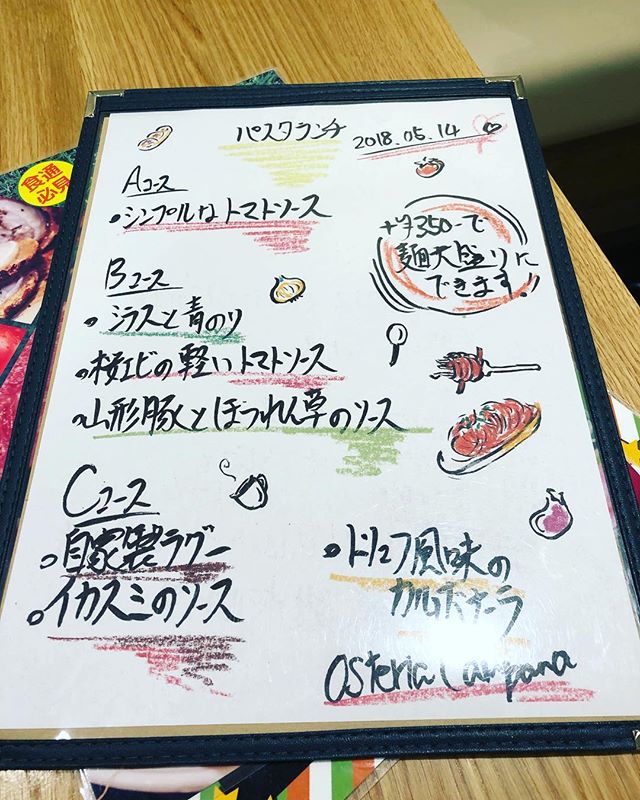 パスタランチ
2018.05.14
Aコース
シンプルなトマトソース
+¥350-で
麺大盛りに
できます!!
Bコース
シラスと青のり
桜エビの軽いトマトソース
山形豚とほうれん草のソース
Cコース
自家製ラグー
イカスミのソース
トリュフ風味の
カルボナーラ
Osteria Campana
食通
必見